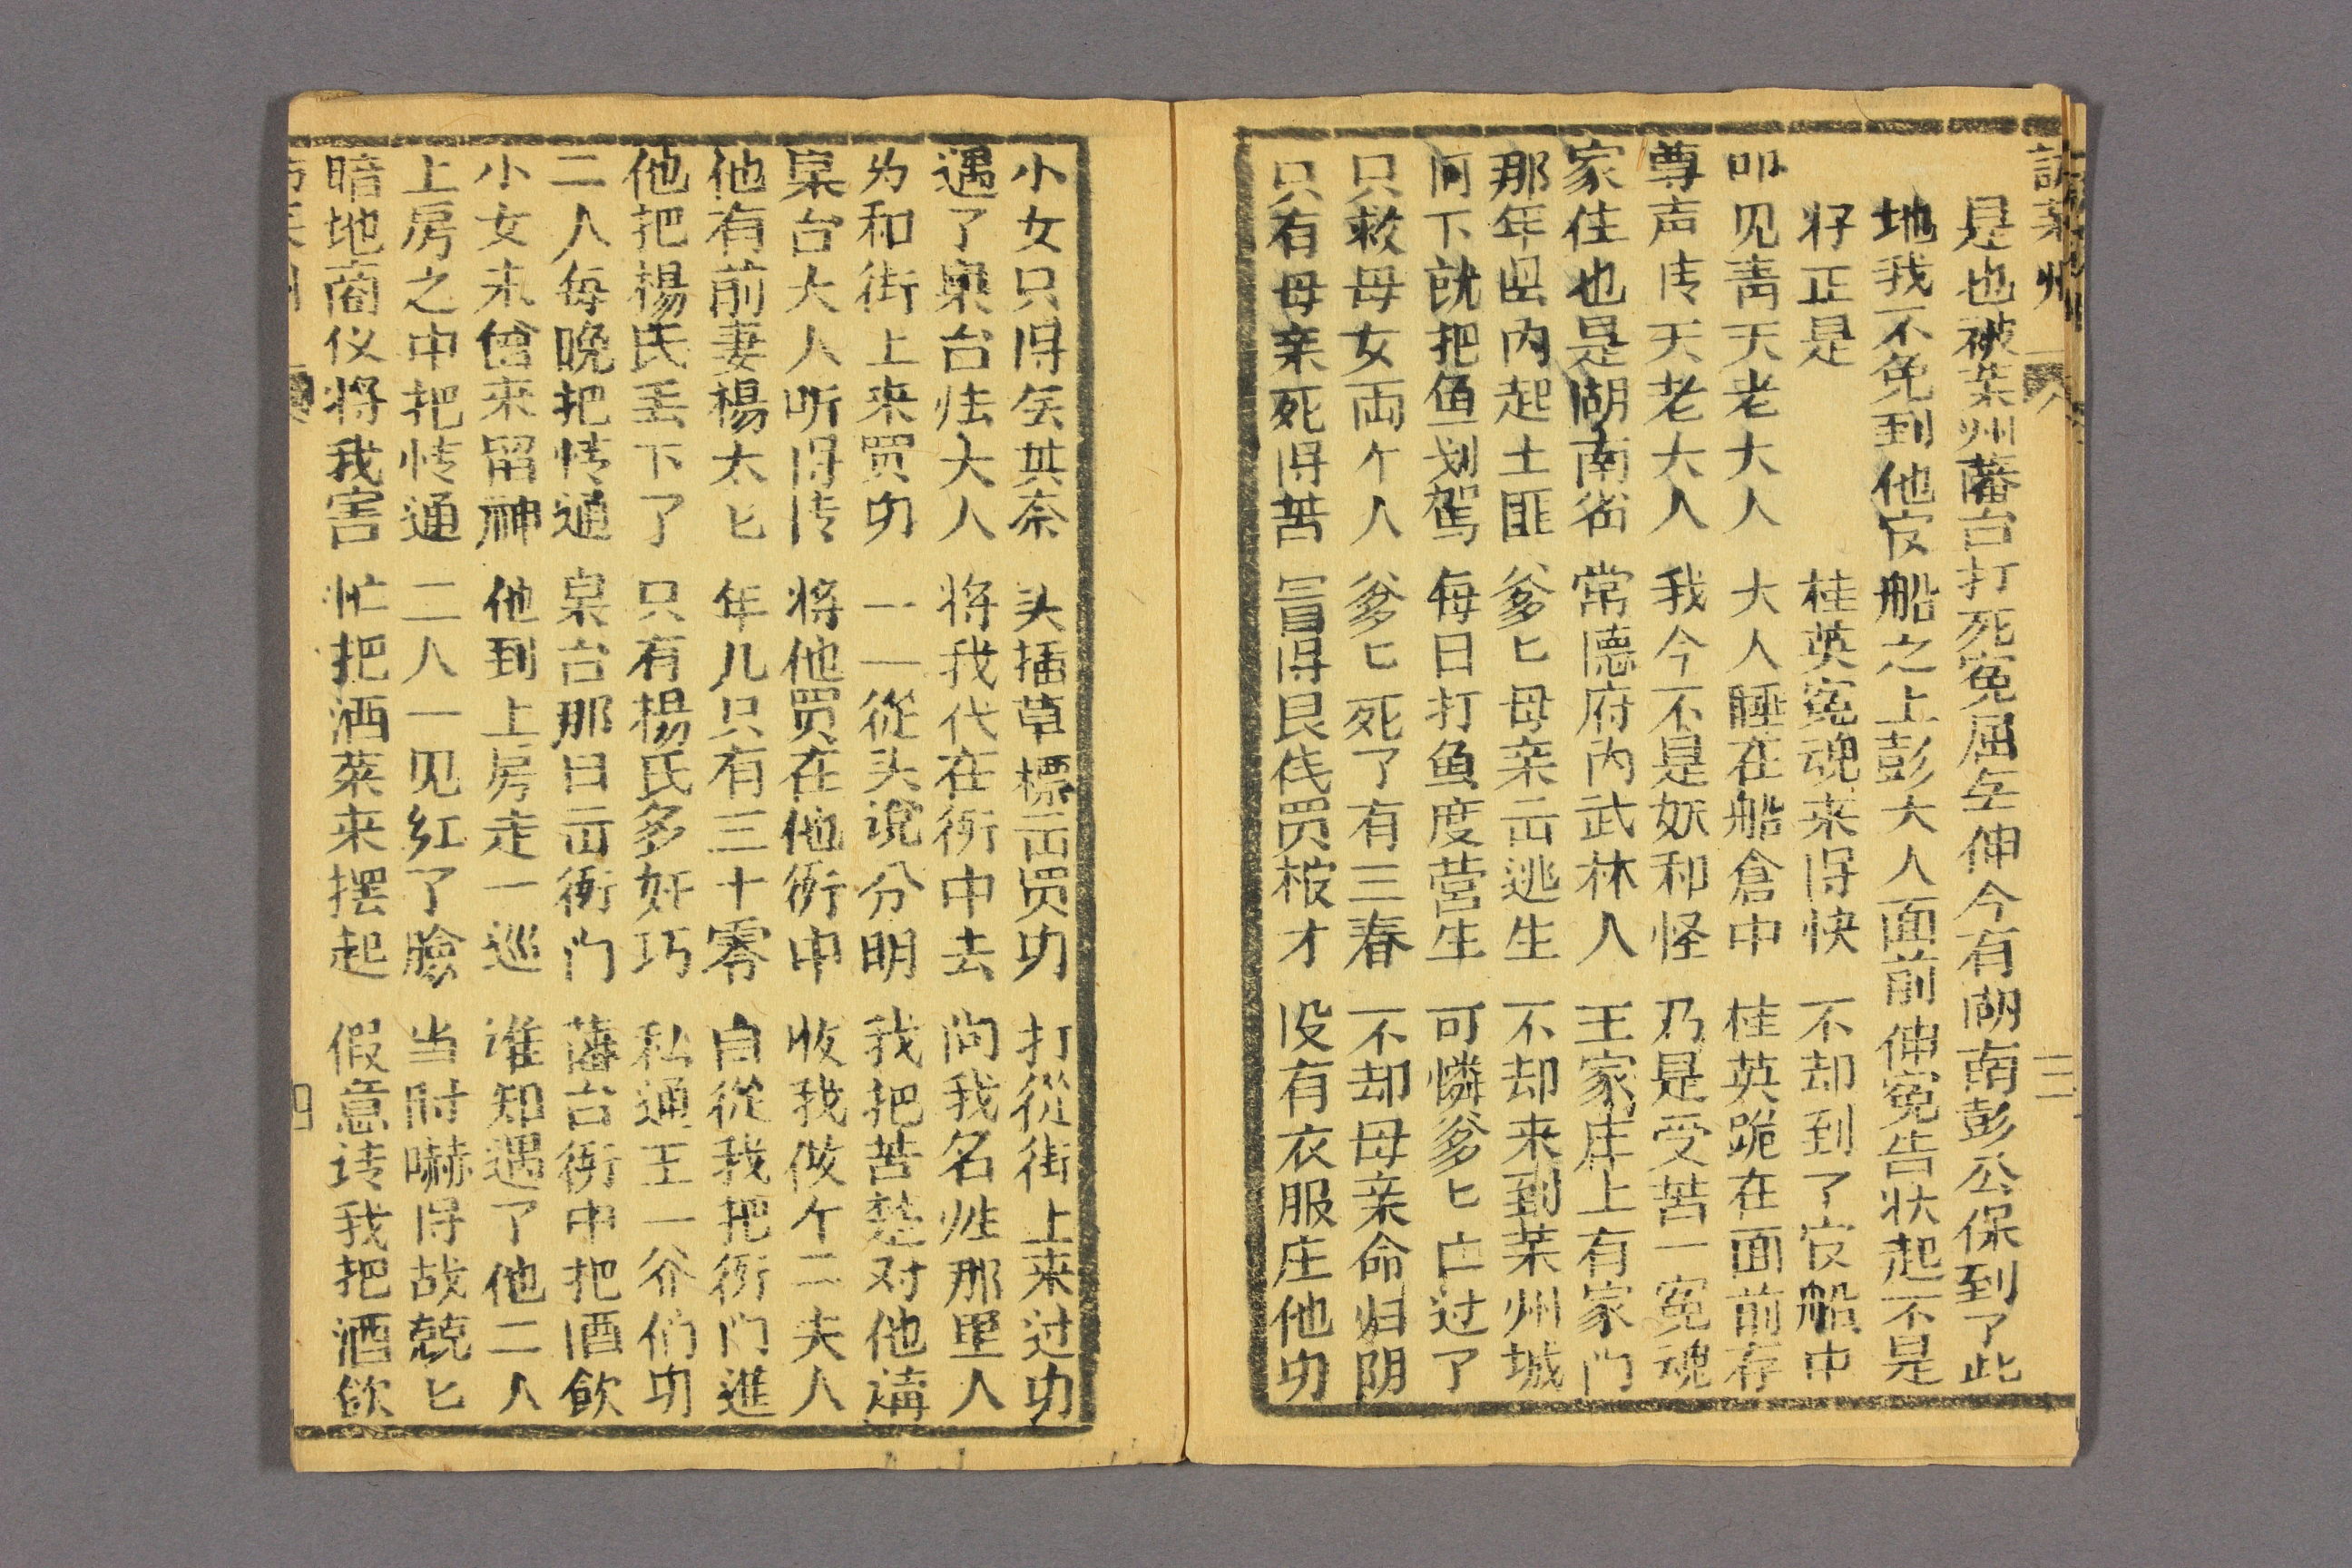 是也被莱州藩台打死冤屈무伸今有湖南彭公保到了此
地我不免到他官船之上彭大人面前伸冤告状起不是
好正是 桂英冤魂来得快 不却到了官船中
叩见青天老大人 大人睡在船倉中 桂英跪在面前存
尊声传天老大人 我今不是妖和怪 乃是受苦一冤魂
家住也是湖南省 常德府内武林人 王家庄上有家门
那年国内起土匪 爹匕母亲出逃生 不却来到莱州城
河下就把鱼划驾 每日打鱼度营生 可憐爹匕亡过了
只救母女両个人 爹匕死了有三春 不却母亲命归阴
只有母亲死得苦 冒得艮伐买棺才 没有衣服庄他功
小女只得무其奈 头插草標出买功 打從街上来过功
遇了臬台法大人 将我代在衙中去 问我名姓那里人
为和街上来买功 一一從头说分明 我把苦楚对他講
臬台大人听得传 将他买在他衙中 收我做个二夫人
他有前妻楊太匕 年几只有三十零 自從我把衙门進
他把楊氏丢下了 只有楊氏多奸巧 私通王一爷们功
二人每晚把情通 臬台那日出衙门 藩台衙中把酒飲
小女未曾来留神 他到上房走一巡 谁知遇了他二人
上房之中把情通 二人一见红了臉 当时嚇得战兢匕
暗地商仪将我害 忙把洒菜来摆起 假意请我把酒飲